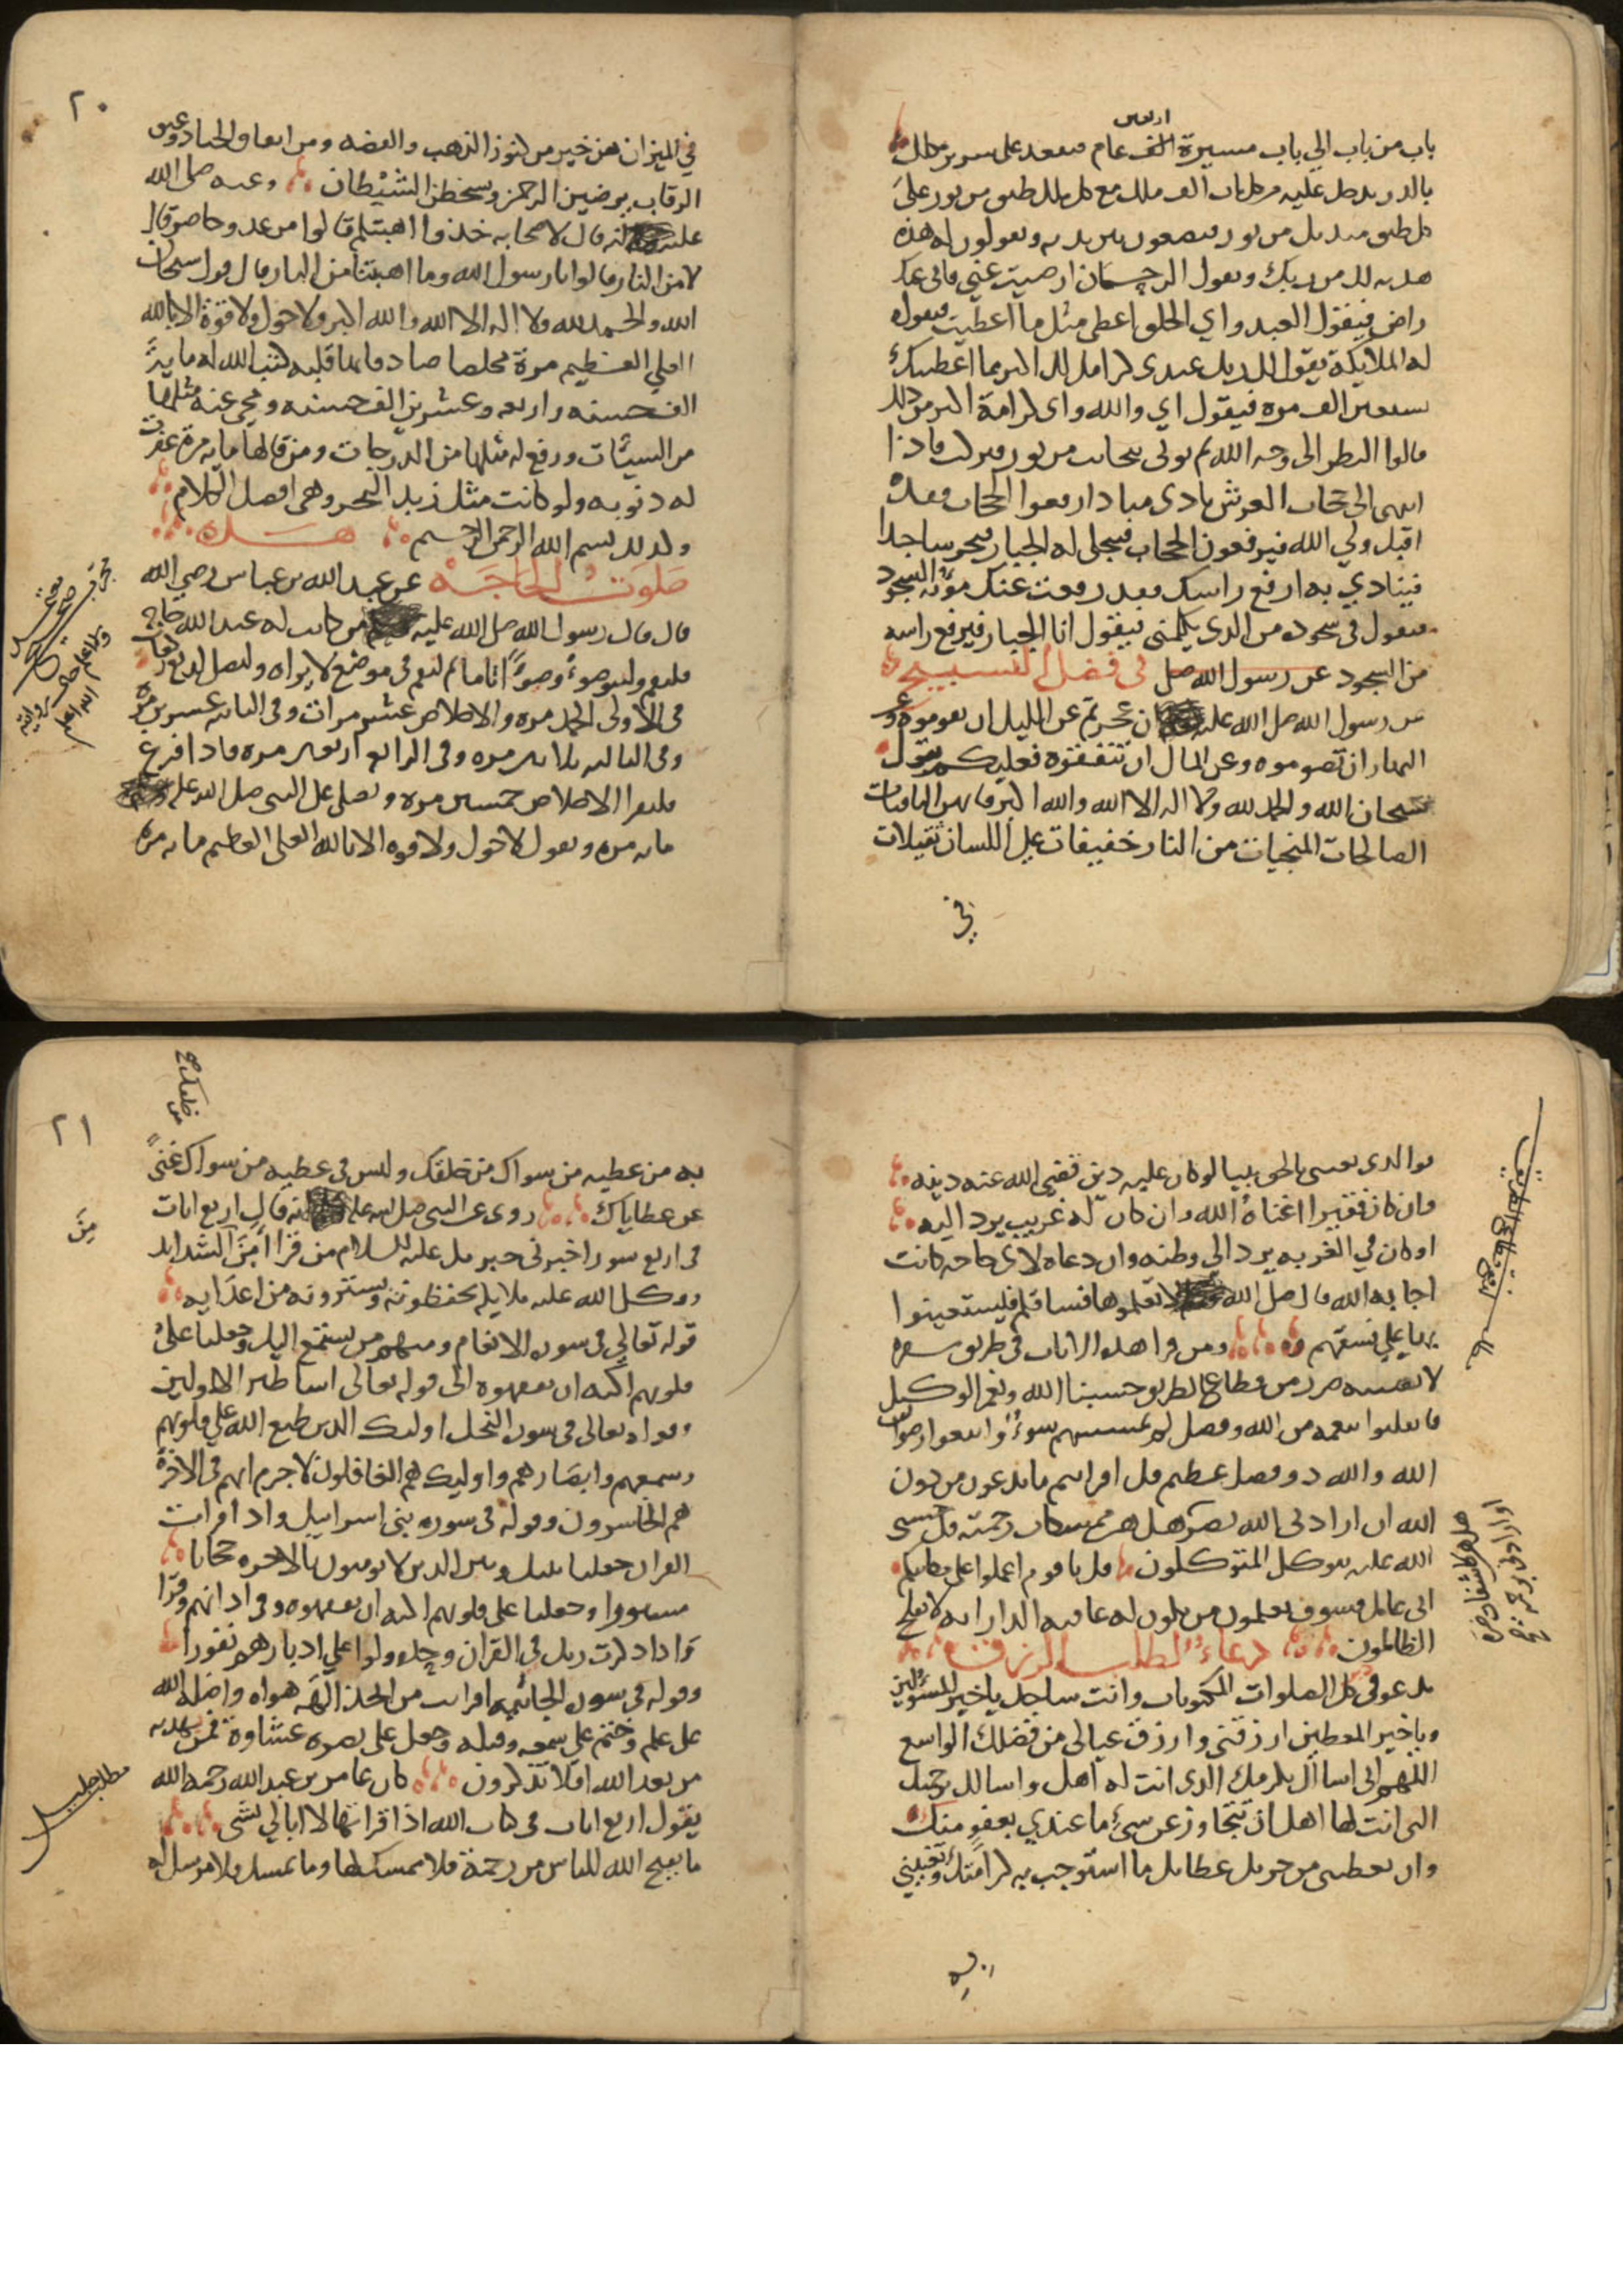 اربعين
باب من باب الي باب مسيرة الف عام فيقعد على سرير مكلل
بالدر يدخل عليه من كل باب الف ملك مع كل ملك طبق من نور على
كل طبق منديل من نور فيضعون بين يديه ويقولون له هذه
هديه لك من ربك ويقول الرحمان ارضيت عني فاني عنك
راض فيقول العبد واي الخلق اعطي مثل ما اعطيت فيقول
له الملايكة يقول الله يا عبدى كرامتك اكبر مما اعطيتك
بسبعين الف مره فيقول اي والله واى كرامة اكبر من ذلك
قالوا النظر الى وجه الله ثم يوتى بنجايب من نور فيركب فاذا
انتهى الى حجاب العرش نادى مناد ارفعوا الحجاب فقد
اقبل ولي الله فيرفعون الحجاب فيتجلى له الجبار فيخر ساجدا
فينادي به ارفع راسك فقد رفعت عنك مؤنة السجود
فيقول فى سجوده من الذى يكلمنى فيقول انا الجبار فيرفع راسه
من السجود عن رسول الله صل في فضل التسبيح
عن رسول الله صل الله عليه ان عجزتم عن الليل ان تقوموه وعن
النهار ان تصوموه وعن المال ان تنفقوه فعليكم بقول
سبحان الله والحمد لله ولا اله الا الله والله اكبر فانهن الباقيات
الصالحات المنجيات من النار خفيفات على اللسان ثقيلات
في
٢٠
في الميزان هن خير من كنوز الذهب والفضه ومن انفاق الجياد وعتق
الرقاب يرضين الرحمن ويسخطن الشيطان وعنه صلى الله
عليه انه قال لاصحابه خذوا اهبتكم قالوا من عدو حاضر قال
لا من النار قالوا يا رسول الله وما اهبتنا من النار قال قول سبحان
الله والحمد لله ولا اله الا الله والله اكبر ولا حول ولا قوة الا بالله
العلي العظيم مرة مخلصا صادقا بها قلبه كتب الله له مايه
الف حسنه واربعه وعشرين الف حسنه ومحى عنه مثلها
من السيئات ورفع له مثلها من الدرجات ومن قالها مايه مرة غفرت
له ذنوبه ولو كانت مثل زبد البحر وهى افضل الكلام
وكذلك بسم الله الرحمن الرحيم هذه
صلوت الحاجة عن عبد الله بن عباس رضي الله
قال قال رسول الله صل الله عليه من كانت له عند الله حاجة
فليقم وليتوضوء وضوءًا تاما ثم ليقم فى موضع لا يراه وليصل اربع ركعات
فى الاولى الحمد مره والاخلاص عشر مرات وفى الثانيه عشرين مره
وفى الثالثه ثلاثين مره وفى الرابعه اربعين مره فاذا فرغ
فليقرا الاخلاص خمسين مره ويصلى على النبى صل الله عليه
مايه مره ويقول لا حول ولا قوه الا بالله العلى العظيم مايه مره
مجرب صحيح
والله اعلم
فوالذى بعثنى بالحق نبيا لو كان عليه دين قضى الله عنه دينه
وان كان فقيرا اغناهُ الله وان كان له غريب يرد اليه
او كان في الغربه يرد الى وطنه وان دعاه لاى حاجه كانت
اجابه الله قال صل الله لا تعلموها فساقكم فيستعينوا
بها على فسقهم ومن قرا هذه الايات فى طريق سفره
لا يصيبه ضرر من قطاع الطريق حسبنا الله ونعم الوكيل
فانقلبوا بنعمه من الله وفضل لم يمسسهم سوءٌ واتبعوا رضوان
الله والله ذو فضل عظيم قل افرايتم ما تدعون من دون
الله ان ارادنى الله بضر هل هن ممسكات رحمته قل حسبى
الله عليه يتوكل المتوكلون قل يا قوم اعملوا على مكانتكم
انى عامل فسوف تعلمون من تكون له عاقبه الدار انه لا يفلح
الظالمون دعاء لطلب الرزق
تدعو فى كل الصلوات المكتوبات وانت ساجد يا خير المسئولين
ويا خير المعطين ارزقنى وارزق عيالى من فضلك الواسع
اللهم انى اسالك بكرمك الذى انت له اهل واسالك برحمتك
التى انت لها اهل ان تتجاوز عن سيئ ما عندي بعفو منك
وان تعطينى من جزيل عطائك ما استوجب به كرامتك وتغنيني
به
هل هن كاشفات ضره
او ارادنى برحمة صح
٢١
به من عطيه من سواك من خلقك وليس فى عطيه من سواك غنىً
عن عطاياك روى عن النبى صل الله عليه انه قال اربع ايات
فى اربع سور اخبرنى جبريل عليه السلام من قراٌ أمِنَ الشدايد
ووكل الله عليه ملايكه يحفظونه ويستزونه من اعدايه
قوله تعالي فى سوره الانعام ومنهم من يستمع اليك وجعلنا على
قلوبهم اكنه ان يفقهوه الى قوله تعالى اساطير الاولين
وقوله تعالى فى سوره النحل اوليك الذين طبع الله على قلوبهم
وسمعهم وابصارهم واوليك هم الغافلون لا جرم انهم فى الاخرة
هم الخاسرون وقوله فى سوره بنى اسراييل واذا قرات
القران جعلنا بينك وبين الذين لا يومنون بالاخره حجابا
مستورا وجعلنا على قلوبهم اكنه ان يفقهوه وفى اذانهم وقرا
واذا ذكرت ربك فى القران وحده ولوا علي ادبارهم نفورا
وقوله فى سوره الجاثيه افرايت من اتخذ الهه هواه واضله الله
على علم وختم على سمعه وقلبه وجعل على بصره غشاوة فمن يهديه
من بعد الله افلا تذكرون كان عامر بن عبد الله رحمه الله
يقول اربع ايات فى كتاب الله اذا قراتها لا ابالي بشى
ما يفتح الله للناس من رحمة فلا ممسك لها وما يمسك فلا مرسل له
مِنَ